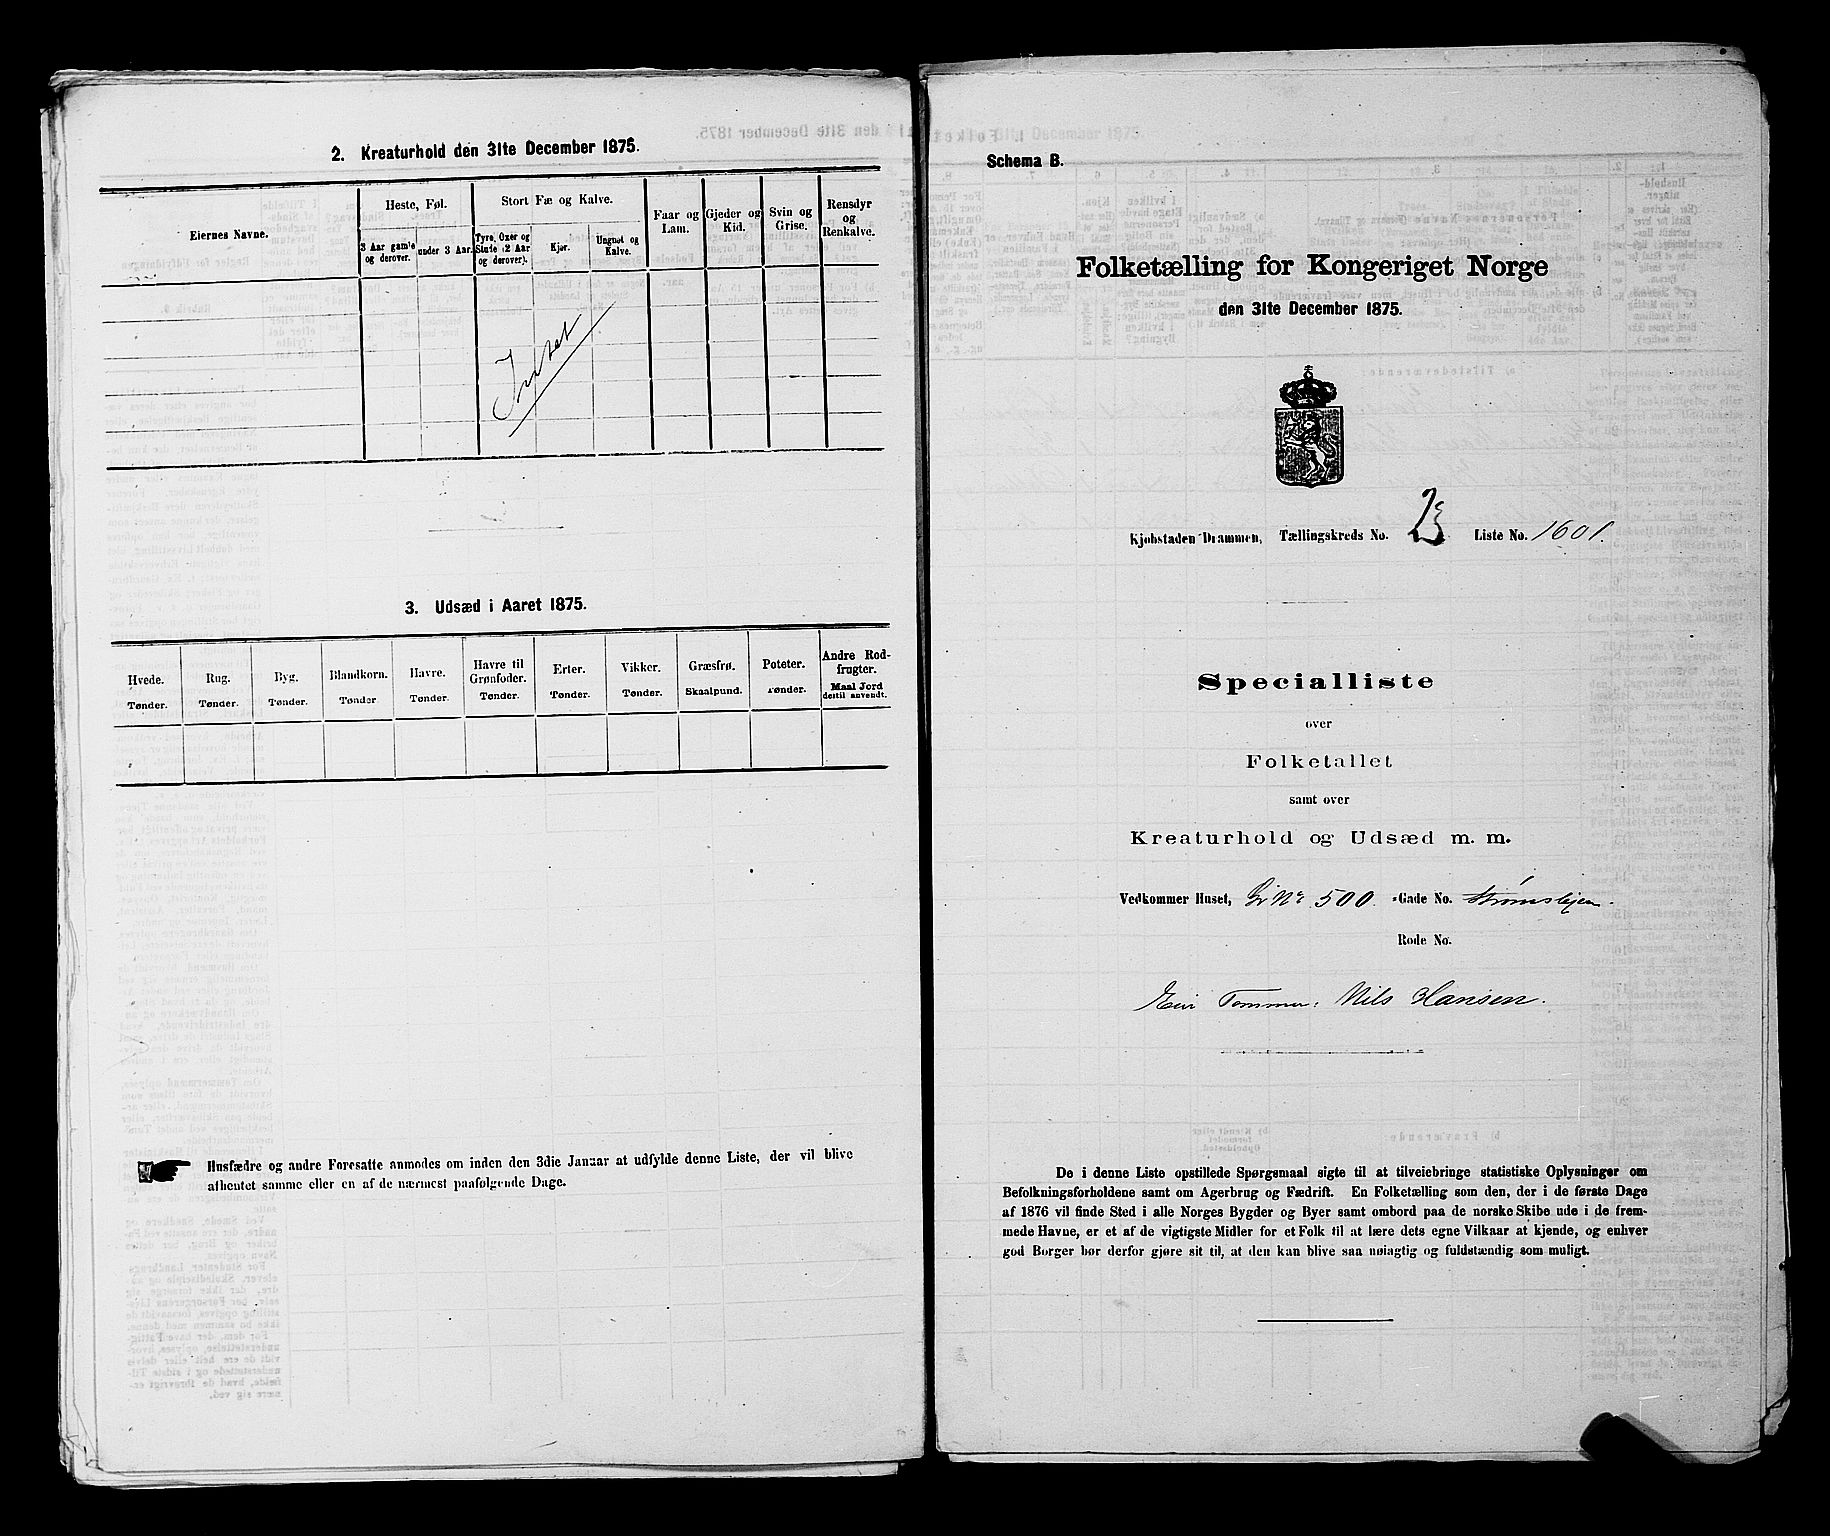 2. Kreaturhold den 31te December 1875.
Eiernes Navne.
Heste, Føl.
3 Aar gamle og derover.
under 3 Aar.
Stort Fæ og Kalve.
Tyre, Oxer og Stute (2 Aar og derover).
Kjør.
Ungnøt og Kalve.
Faar og Lam.
Gjeder og Kid.
Svin og Grise.
Rensdyr og Renkalve.
Intet
3. Udsæd i Aaret 1875.
Hvede. Tønder.
Rug. Tønder.
Byg. Tønder.
Blandkorn. Tønder
Havre. Tønder.
Havre til Grønfoder. Tønder.
Erter. Tønder.
Vikker. Tønder.
Græsfrø. Skaalpund.
Poteter. Tønder.
Andre Rodfrugter. Maal Jord dertil anvendt.
Husfædre og andre Foresatte anmodes om inden den 3die Januar at udfylde denne Liste, der vil blive
afhentet samme eller en af de nærmest paafølgende Dage.
Schema B.
Folketælling for Kongeriget Norge
den 31te December 1875.
Kjøbstaden Drammen, Tællingskreds No. Liste No. 1601.
Specialliste
over
Folketallet
samt over
Kreaturhold og Udsæd m. m.
Vedkommer Huset, Gr No 500. Gade No.
Rode No.
Eier Tømmer: Nils Hansen.
De i denne Liste opstillede Spørgsmaal sigte til at tilveiebringe statistiske Oplysninger om
Befolkningsforholdene samt om Agerbrug og Fædrift. En Folketælling som den, der i de første Dage
af 1876 vil finde Sted i alle Norges Bygder og Byer samt ombord paa de norske Skibe ude i de frem-
mede Havne, er et af de vigtigste Midler for et Folk til at lære dets egne Vilkaar at kjende, og enhver
god Borger bør derfor gjøre sit til, at den kan blive saa nøiagtig og fuldstændig som muligt.